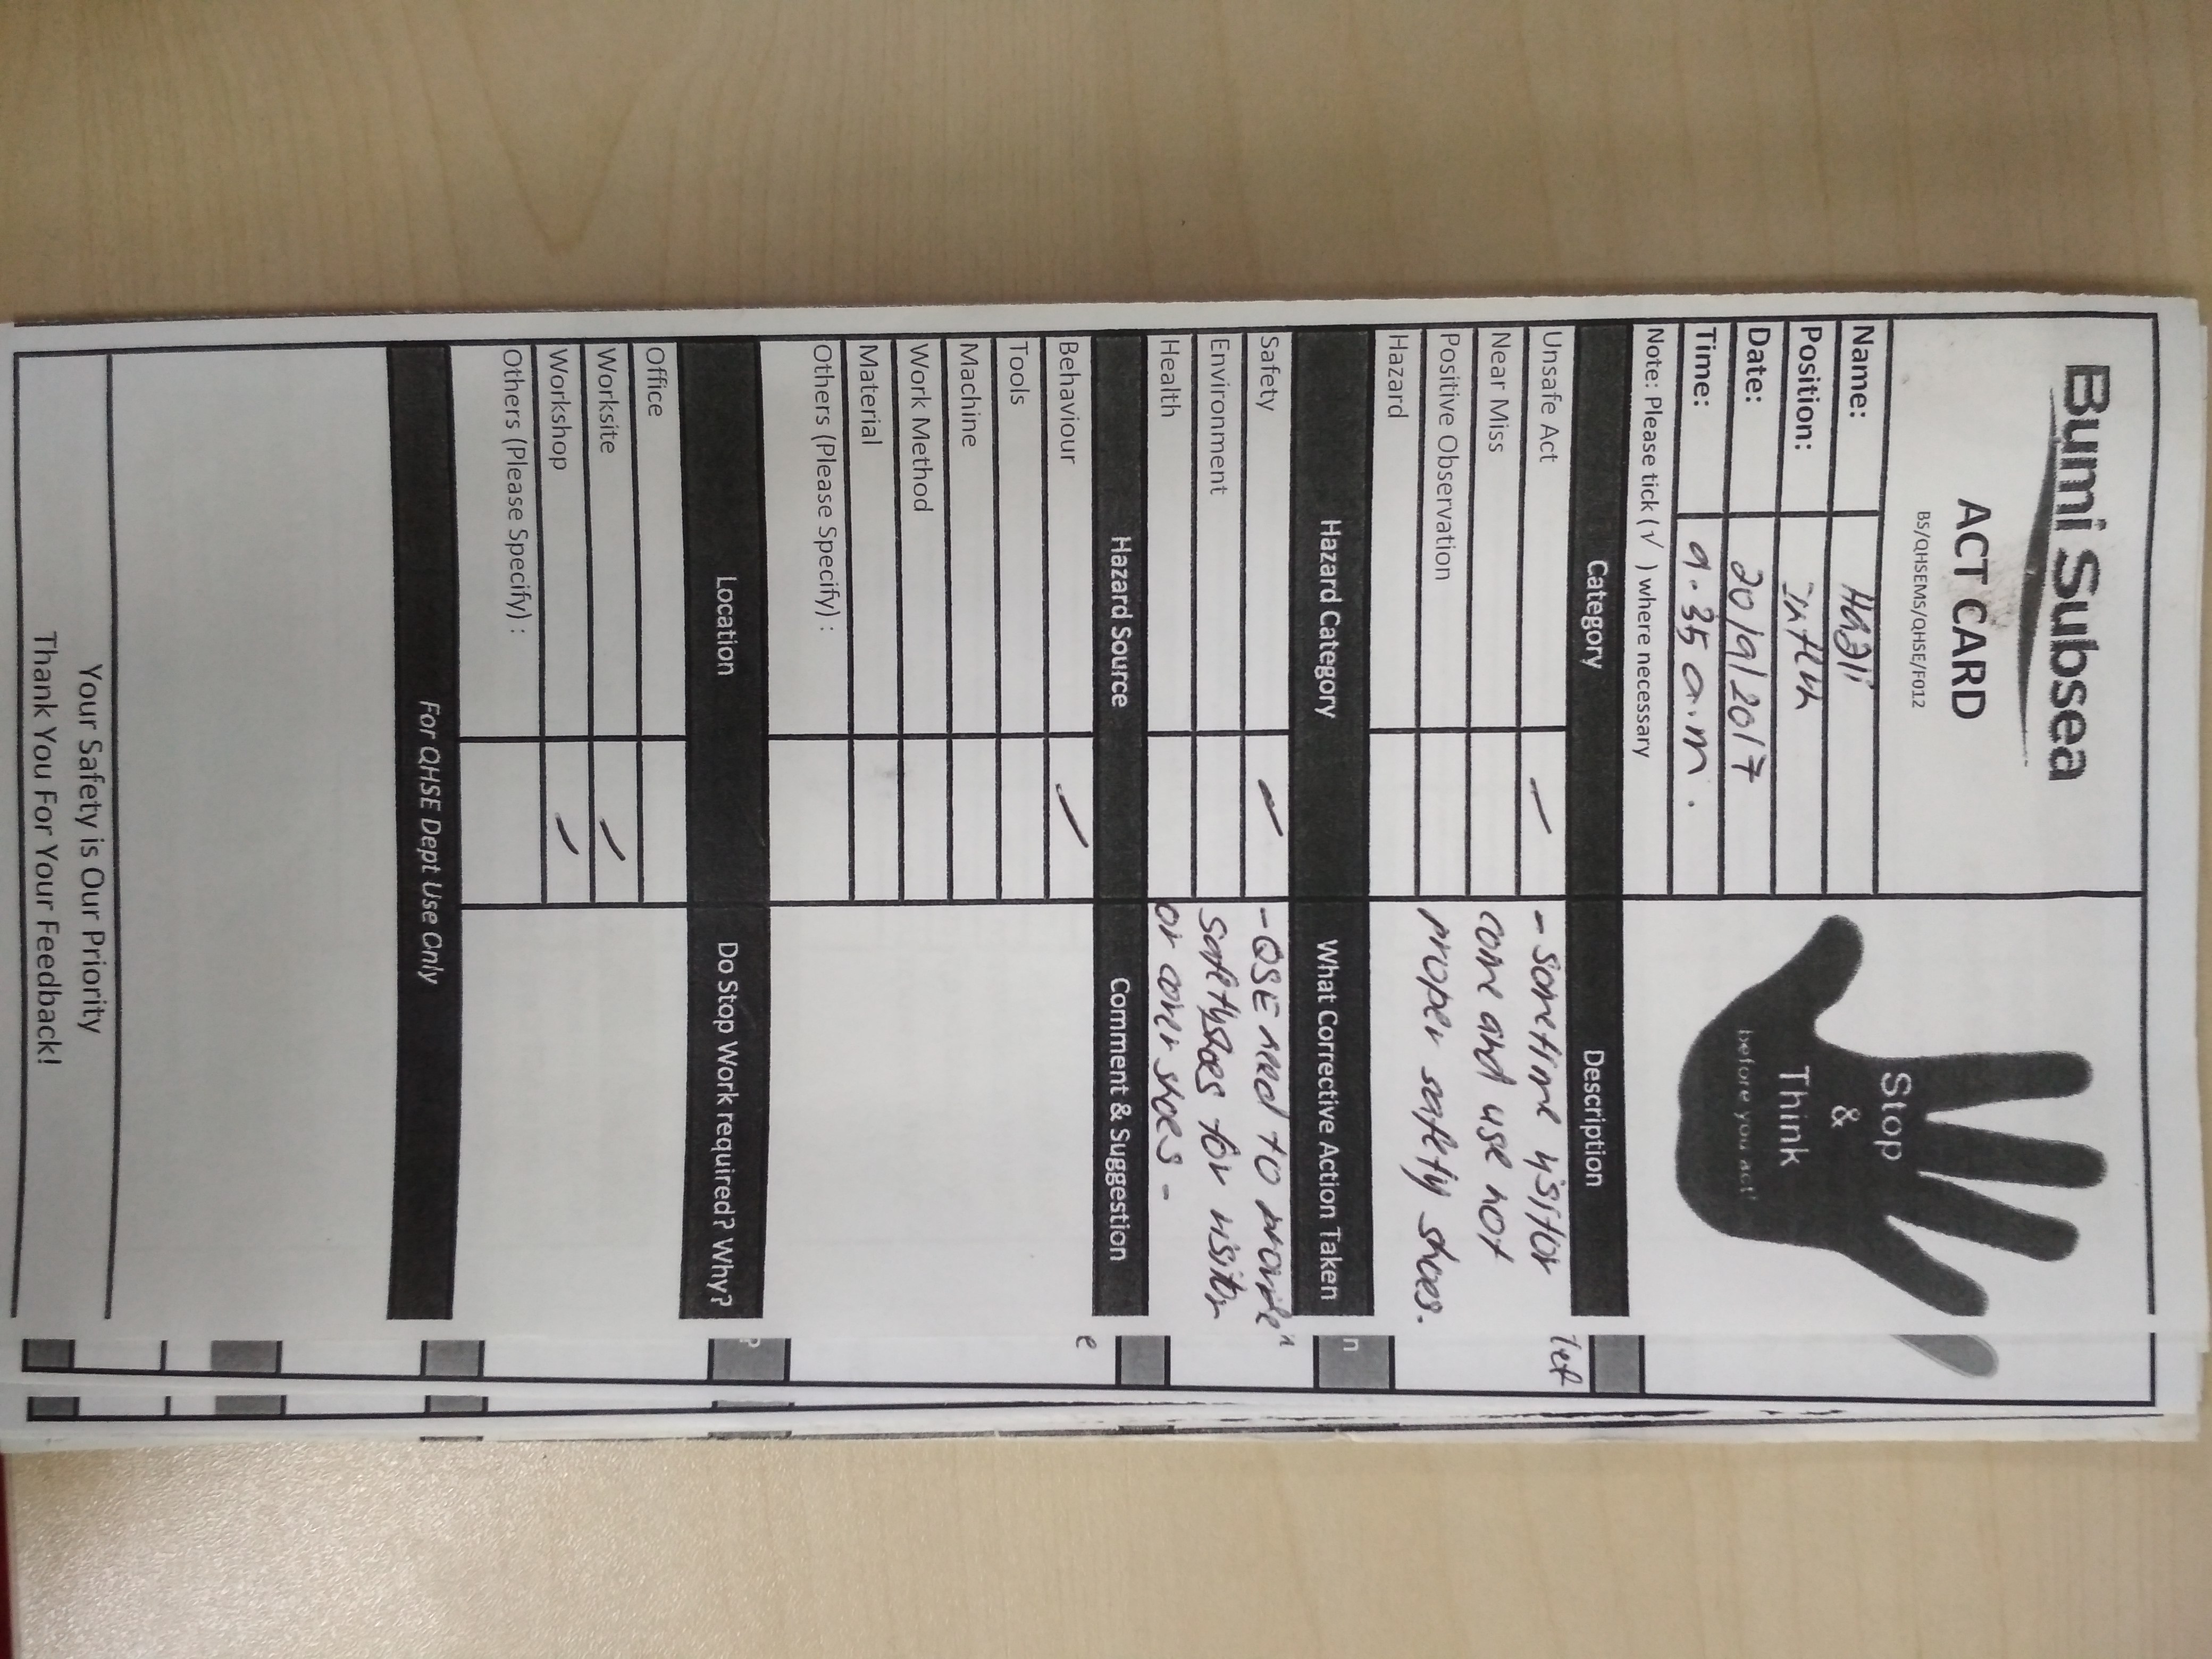 Bumi Subsea
ACT CARD
BS/QHSEMS/QHSE/F012
Stop
&
Think
before you act!
Name: Hazli
Position:
Date: 20/9/2017
Time: 9.35 a.m.
Note: Please tick (√ ) where necessary
Category Description
Unsafe Act ✓ - sometime visitor
Near Miss come and use not
Positive Observation proper safety shoes.
Hazard
Hazard Category What Corrective Action Taken
Safety ✓ - QSE need to provide
Environment safety shoes for visitor
Health or cover shoes -
Hazard Source Comment & Suggestion
Behaviour ✓
Tools
Machine
Work Method
Material
Others (Please Specify) :
Location Do Stop Work required? Why?
Office
Worksite ✓
Workshop ✓
Others (Please Specify) :
For QHSE Dept Use Only
Your Safety is Our Priority
Thank You For Your Feedback!